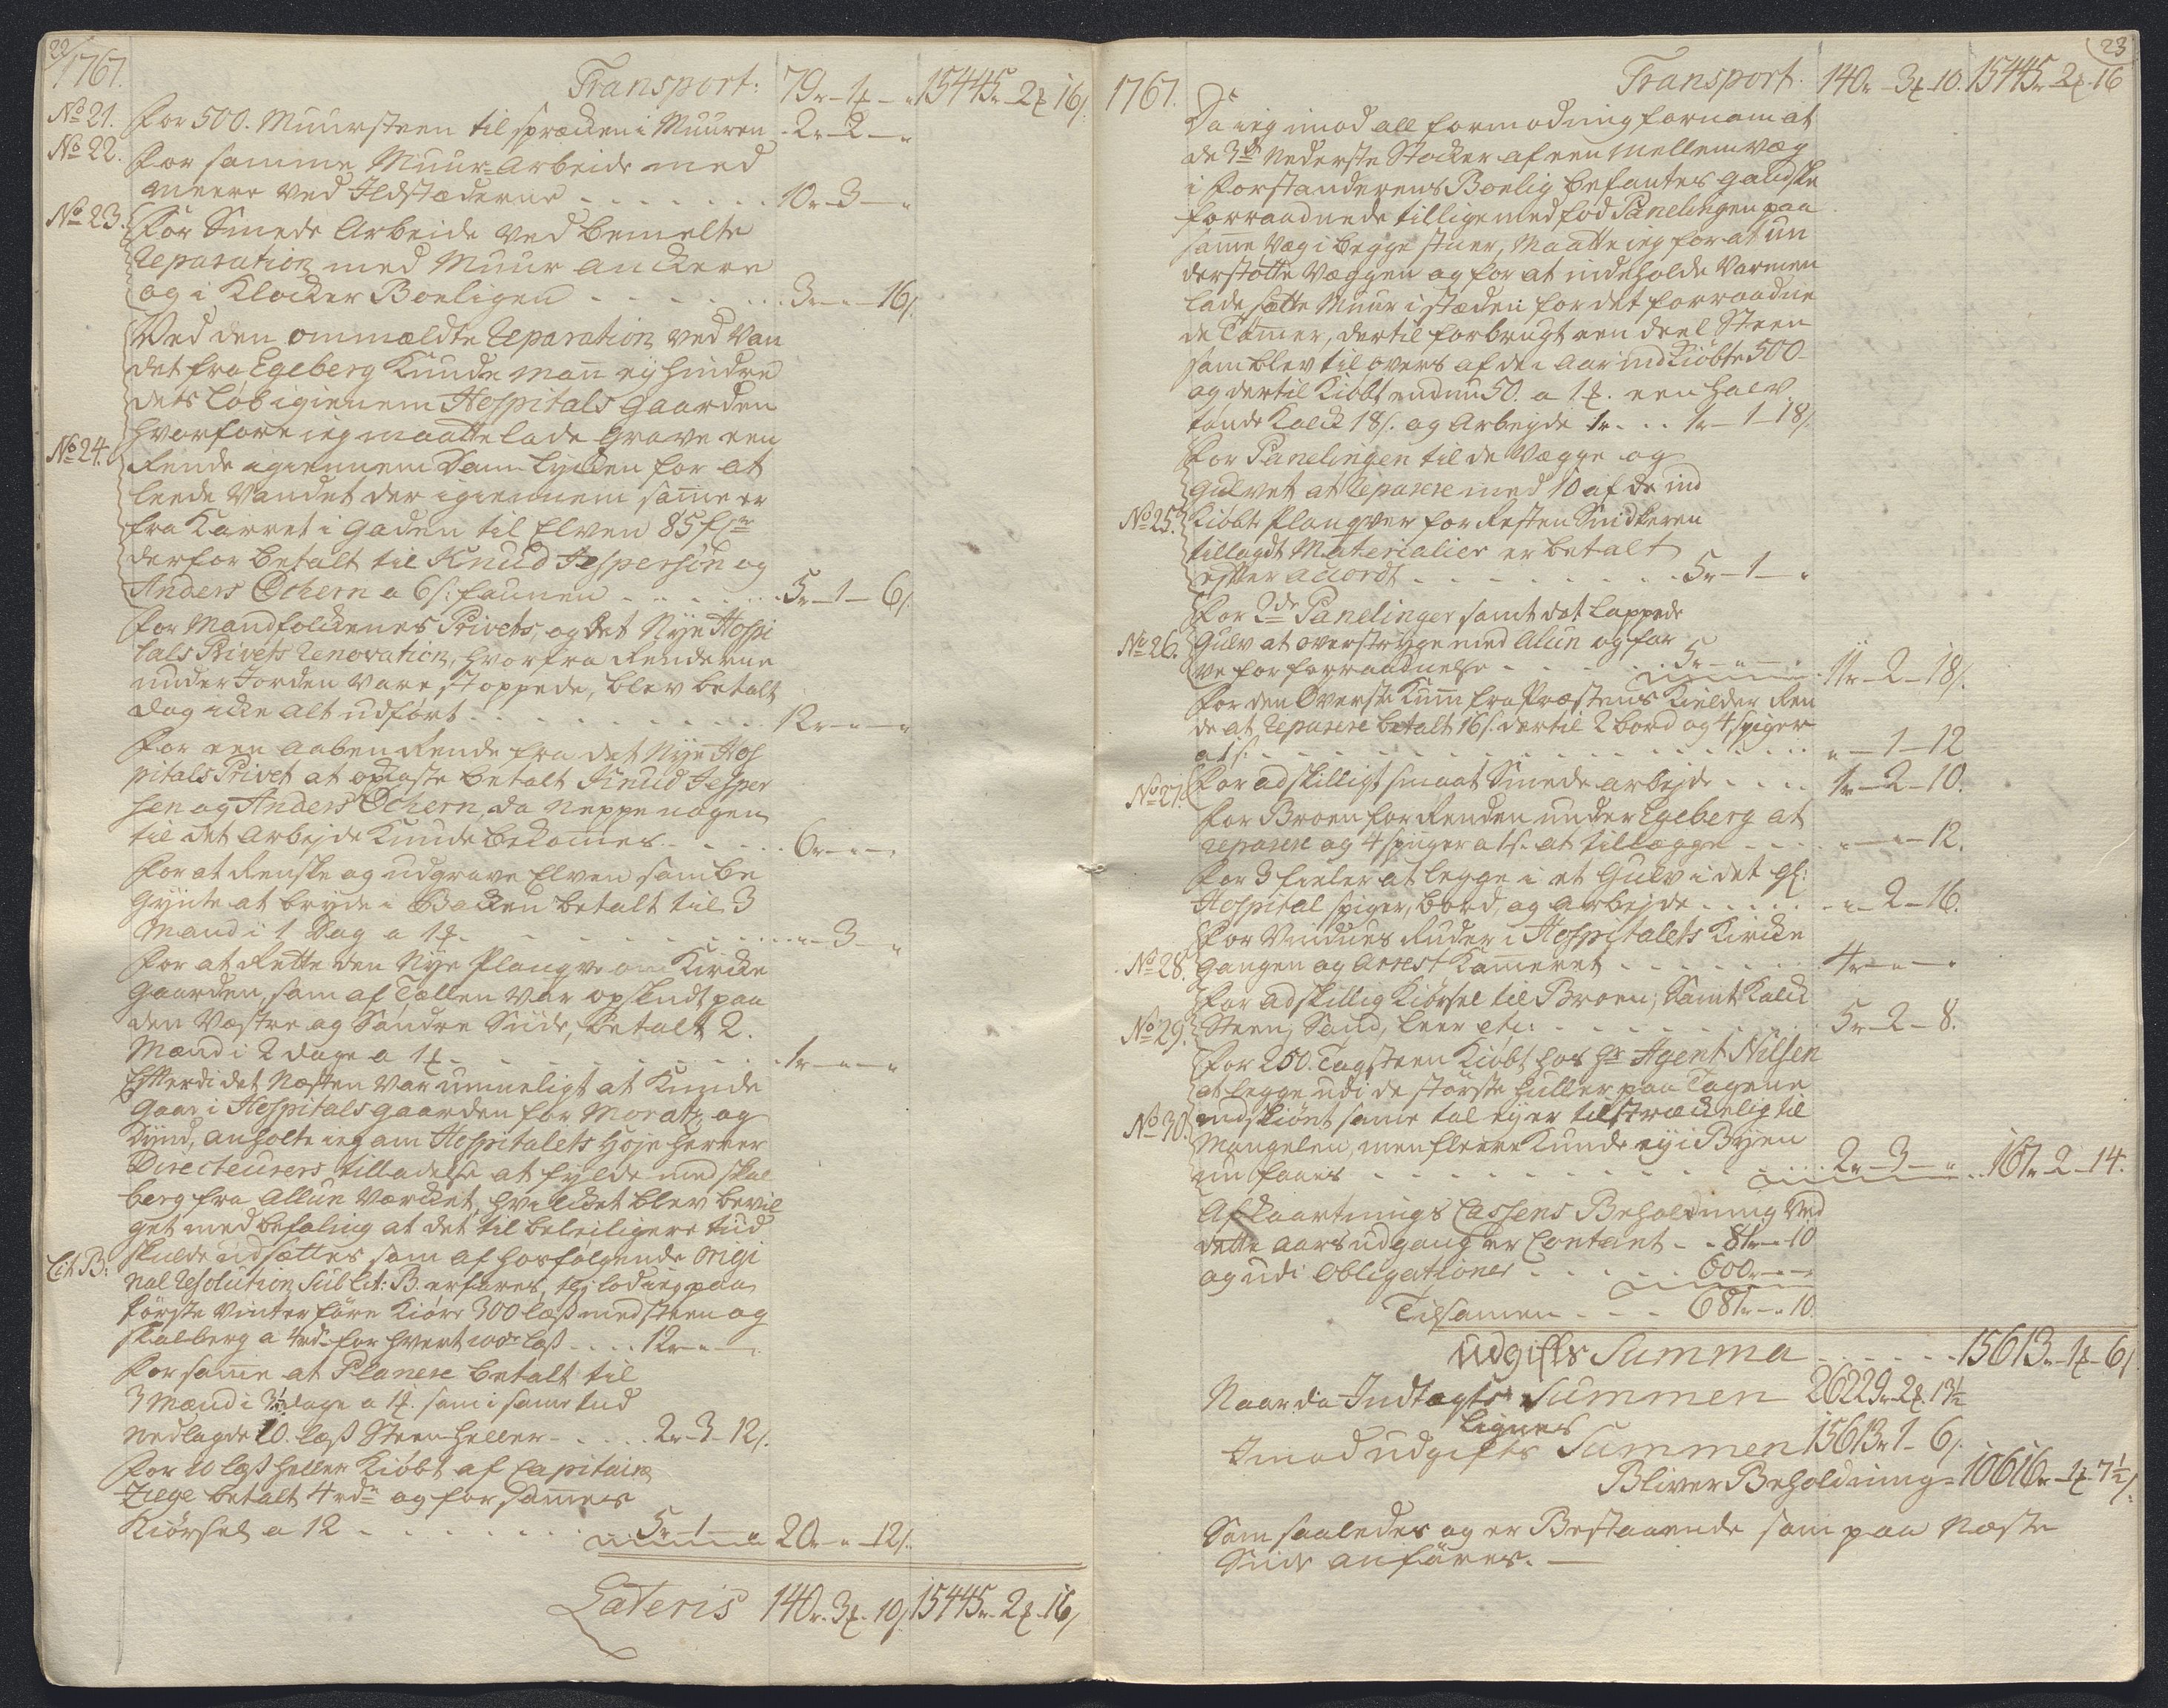 22
1767.
Transport: 79r-1₰-" 15445r-2₰16s
No 21. For 500. Muursteen til sprækken i Muuren 2r-2-"
No 22. For samme Muur-Arbeide med
meere ved Ildstæderne 10r-3-"
No 23. For Smede Arbeide ved bemelte
Reparation med Muur anckere
og i Klocker Boeligen 3r-"-16s.
Ved den ommældte Reparation ved Van
det fra Egeberg Kunde man ey hindre
dets Løb igienem Hospitals Gaarden
hvorfore ieg maatte lade Grave een
No 24. Rende igiennem Dam-Lycken for at
leede Vandet der igiennem samme er
fra Karret i Gaden til Elven 85 f
derfor betalt til Knud Jespersøn og
Anders Ochern a 6s: faunen 5r-1-6s.
For Mandfolckenes Privets, og det Nye Hospi
tals Privets Renovation, hvorfra Renderne
under Jorden vare stoppede, blev betalt
dog icke alt udført 12r-"-"
For een aaben Rende fra det Nye Hos
pitals Privet at opkaste betalt Knud Jesper
sen og Anders Ochern, da neppe nogen
til det Arbejde Kunde bekomes 6r-"-"
For at Renske og udgrave Elven som be
gynte at bryde i Backen betalt til 3
Mand i 1 Dag a 1₰ "-3-"
For at Rette den Nye Plangve om Kircke
Gaarden, som af Tællen var opskudt paa
den Vestre og Søndre Siide, betalt 2.
Mænd i 2 dage a 1₰ 1r-"-"
Efterdi det Næsten var umueligt at Kunde
Gaae i Hospitals Gaarden for Morats og
Dynd, anholte ieg om Hospitalets Høje Herrer
Directeurers tilladelse at fylde med skal
berg fra Allun Værcket, hvilcket blev bevil
get med befaling at det til beleiligere tiid
Lit B: skulde udsættes som af hosfølgende origi
nal Resolution Sub Lit: B. erfares, thi lod ieg paa
første Vinterføre Kiøre 300 læs med steen og
skalberg a 4rd for hvert 100de læs 12r-"-"
For samme at Planere betalt til
3 Mænd i 3½ dage a 1₰. som i samme tiid
nedlagde 20. læs Steen-Heller 2r-3-12s.
For 20 læs heller Kiøbt af Capitain
Ziege betalt 4rdr og for sammes
Kiørsel a 12 5r-1-" 20r-"-12s.
Lateris 140r-3₰-10s 15445r-2₰-16s
23
1767. Transport. 140r-3₰-10. 15445r-2₰-16
Da ieg imod all formodning fornam at
de 3de Nederste Stocker af een Mellemvæg
i Forstanderens Boelig befantes gandske
forraadnede tillige med fod Panelingen paa
samme Væg i begge stuer, Maatte ieg for at un
derstøtte Væggen og for at indeholde Varmen
lade sætte Muur i stæden for det forraadne
de Tømer, dertil forbrugt een deel Steen
som blev til overs af de i Aar indkiøbte 500
og dertil Kiøbt endnu 50. a 1₰. een halv
tønde Kalck 18s. og Arbejde 1r 1r-1-18s
For Panelingen til de Vægge og
Gulvet at Reparere med 10 af de ind
No 25. kiøbte Planqver for Resten Snidkeren
tillagdt Materialier er betalt
efter accordt 5r-1-"
For 2de Panelinger samt det lappede
No 26. Gulv at overstryge med Alun og far
ve for forraadnelse 5r-"-" 11r-2-18s.
For den Øverste Kum fra Præstens Kielder Ren
de at Reparere betalt 16s. dertil 2 bord og 4 spiger
a 1s. "-1-12
No 27. For adskilligt smaat Smede arbejde 1r-2-10.
For Broen for Renden under Egeberg at
reparere og 4 spiiger a 1s. at tillægge "-"-12.
For 3 fieler at legge i et Gulv i det gl:
Hospital spiger, bord, og arbejde "-2-16.
For Vindues Ruder i Hospitalets Kircke
No 28. Gangen og Arrest Kameret 4r-"-"
For adskillig Kiørsel til Broen, Samt Kalck
No 29. Steen, Sand, Leer etc: 5r-2-8.
For 250. Tagsteen Kiøbt hos Hr Agent Nilsen
at legge udi de største huller paa Tagene
No 30. endskiønt samme tal ey er tilstreckelig til
Mangelen, men fleere Kunde ey i Byen
nu faaes 2r-3-" 167r-2-14.
Afkaartnings Cassens Beholdning ved
dette aars udgang er Contant 81r-"-10
og udi Obligationer 600r-"-"
Tilsamen 681r-"-10.
Udgifts Summa 15613r-1₰-6s
Naar da Indtægts Summen 26229r-2₰-13½
lignes
Imod udgifts Summen 15613r-1-6s.
Bliver Beholdning 10616r-1₰-7½s.
Som saaledes og er Bestaaende som paa Næste
Siide anføres.